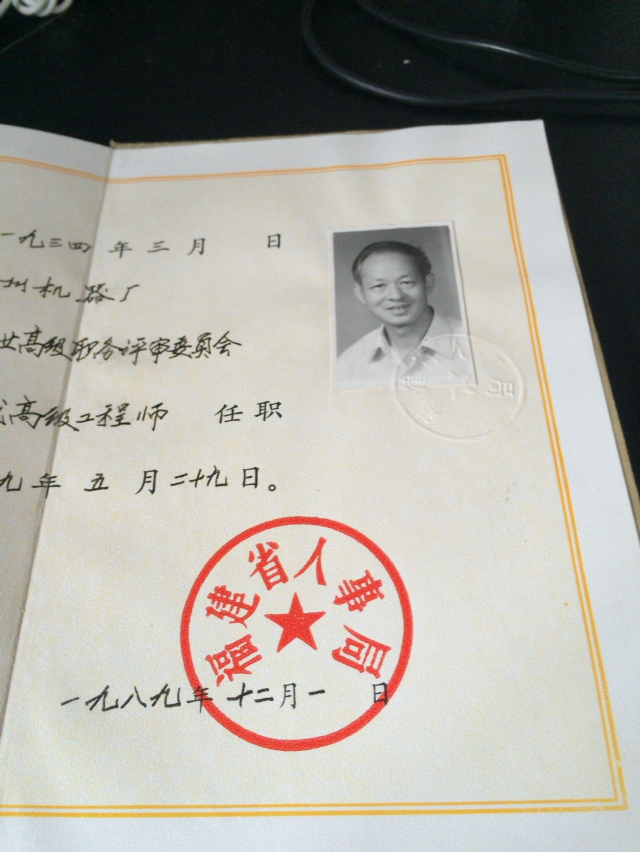 一九三四 年 三 月 日
州机器厂
业高级职务评审委员会
高级工程师 任职
九 年 五 月二十九日。
福建省人事局
一九八九年 十二月一 日